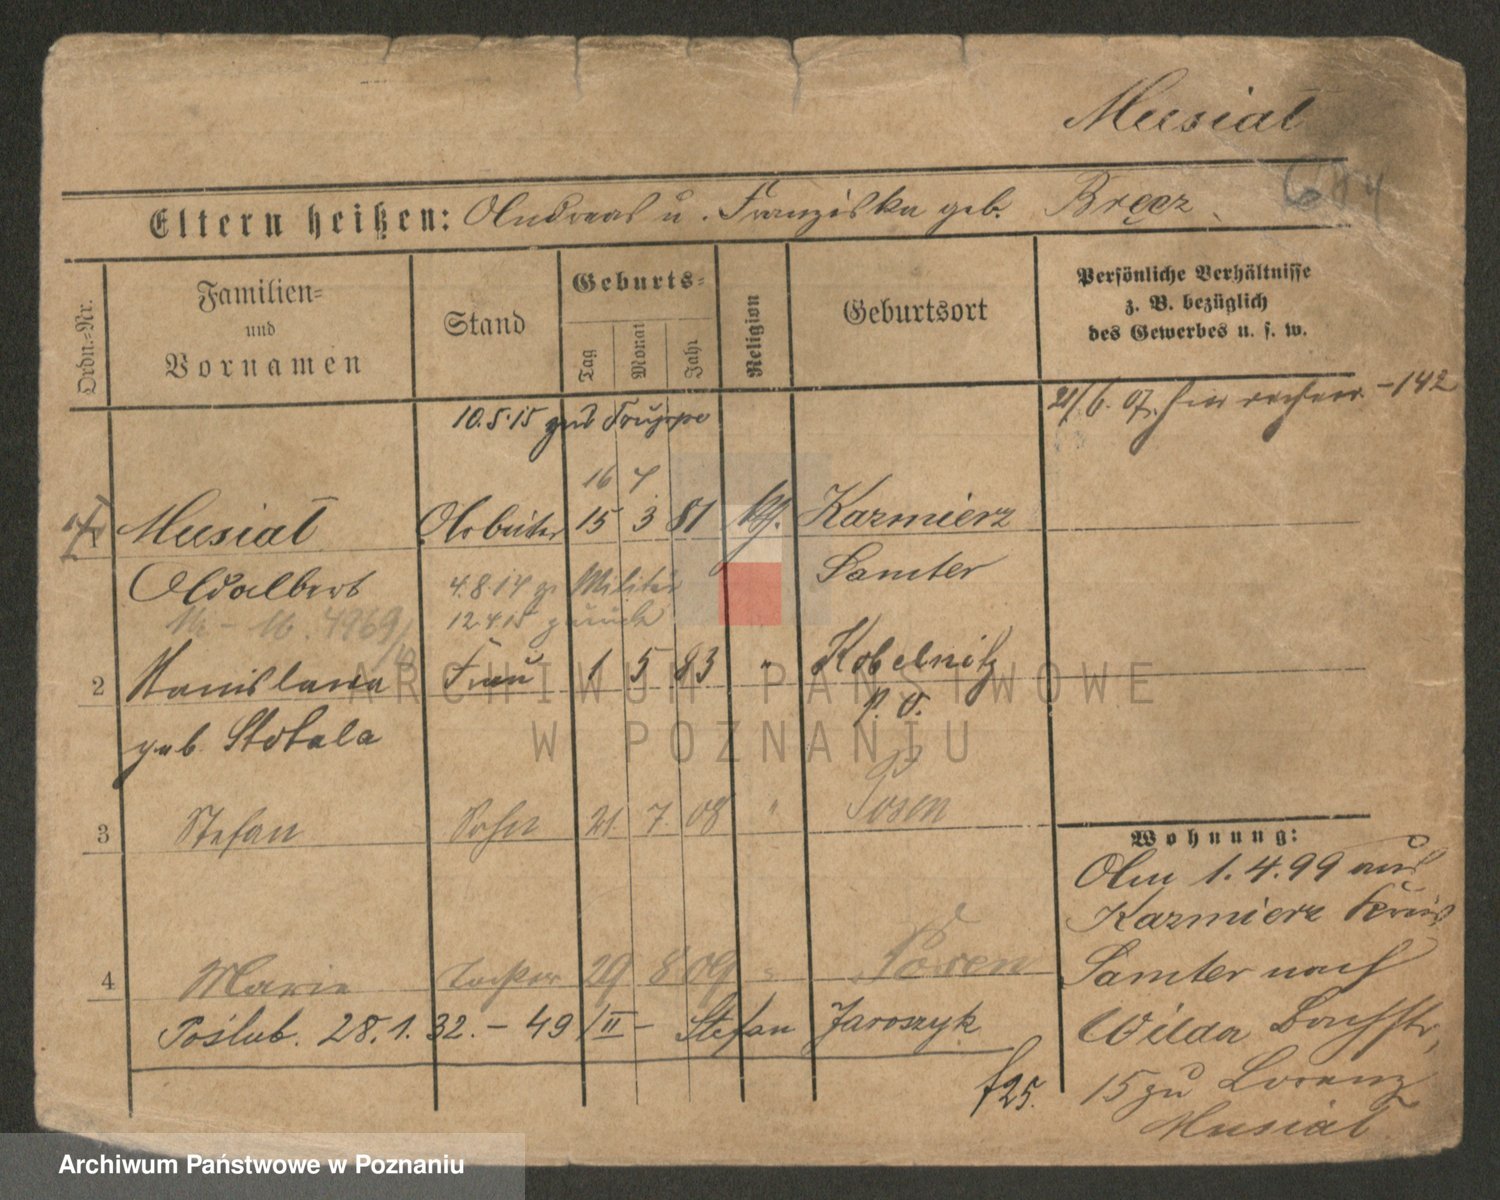 Musiał
Eltern heißen: Andreas u. Franziska geb. Bręcz
Ordn.-Nr.
Familien-
und
Vornamen
Stand
Geburts-
Tag
Monat
Jahr
Religion
Geburtsort
Persönliche Verhältnisse
z. B. bezüglich
des Gewerbes u. s. w.
21/6. 07. -142
10.5.15 zur Truppe
16 7.
1 Musiał Arbeiter 15 3 81 Kazmierz
Adalbert 4.8.14 z. Militär Samter
12.4.15 zurück
2 Stanislawa Frau 1 5 83 " Kobelnitz
geb. Stotala p. O.
3 Stefan Sohn 21. 7. 08 " Posen
4 Marie Tochter 29 8 09 Posen
Poślub. 28.1.32. – 49/II – Stefan Jaroszyk
f25.
Wohnung:
Am 1.4.99 aus
Kazmierz Kreis
Samter nach
Wilda Bachstr.
15 zu Lorenz
Musiał
ARCHIWUM PAŃSTWOWE
W POZNANIU
Archiwum Państwowe w Poznaniu